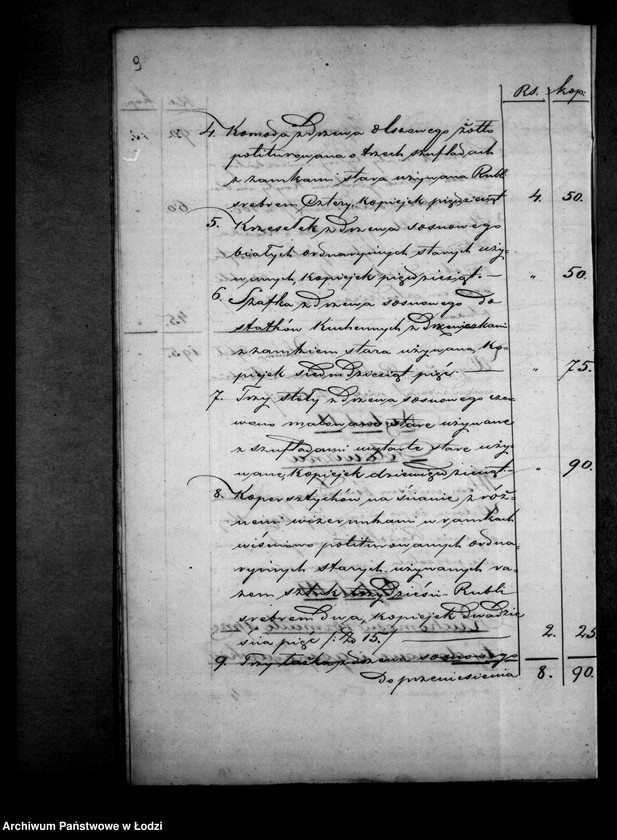 9
Rs. kop.
4. Komoda z drzewa olszowego żółto
politurowana o trzech szufladach
z zamkami stara używana Rubli
srebrem Cztery, kopiejek pięćdziesiąt 4. 50.
5. Krzesełek z drzewa sosnowego
białych ordynaryjnych starych uży-
wanych, kopiejek pięćdziesiąt. — „ 50.
6. Szafka z drzewa sosnowego do
statków kuchennych z drzwiczkami
z zamkiem stara używana, Ko-
piejek siedmdziesiąt pięć. — „ 75.
7. Trzy stoły z drzewa sosnowego czer-
wono malowane stare używane
z szufladami wytarte stare uży-
wane, kopiejek dziewięćdziesiąt „ 90.
8. Kopersztychów na ścianie z róż-
nemi wizerunkami w ramkach
wiśniowo politurowanych ordna-
ryjnych starych używanych ra-
zem sztuk trzydzieści Rubli
srebrem dwa, kopiejek dwadzie-
ścia pięć /: Zł 15 / 2. 25
9. Trzy łóżka z drzewa sosnowego
Do przeniesienia 8. 90.
Archiwum Państwowe w Łodzi